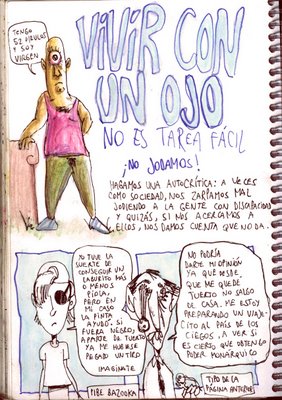 TENGO
52 PIRULOS
Y SOY
VIRGEN
VIVIR CON
UN OJO
NO ES TAREA FÁCIL
¡NO JODAMOS!
HAGAMOS UNA AUTOCRÍTICA: A VECES
COMO SOCIEDAD, NOS ZARPAMOS MAL
JODIENDO A LA GENTE CON DISCAPACIDAD
Y QUIZÁS, SI NOS ACERCAMOS A
ELLOS, NOS DAMOS CUENTA QUE NO DA.
YO TUVE LA
SUERTE DE
CONSEGUIR UN
LABURITO MÁS
O MENOS
PIOLA,
PERO EN
MI CASO
LA PINTA
AYUDÓ. SI
FUERA NEGRO,
APARTE DE TUERTO
YA ME HUBIESE
PEGADO UN TIRO
IMAGINATE
PIBE BAZOOKA
NO PODRÍA
DARTE MI OPINIÓN
YA QUE DESDE
QUE ME QUEDÉ
TUERTO NO SALGO
DE CASA. ME ESTOY
PREPARANDO UN VIAJE-
CITO AL PAÍS DE LOS
CIEGOS, A VER SI
ES CIERTO QUE OBTENGO
PODER MONÁRQUICO
TIPO DE LA
PÁGINA ANTERIOR